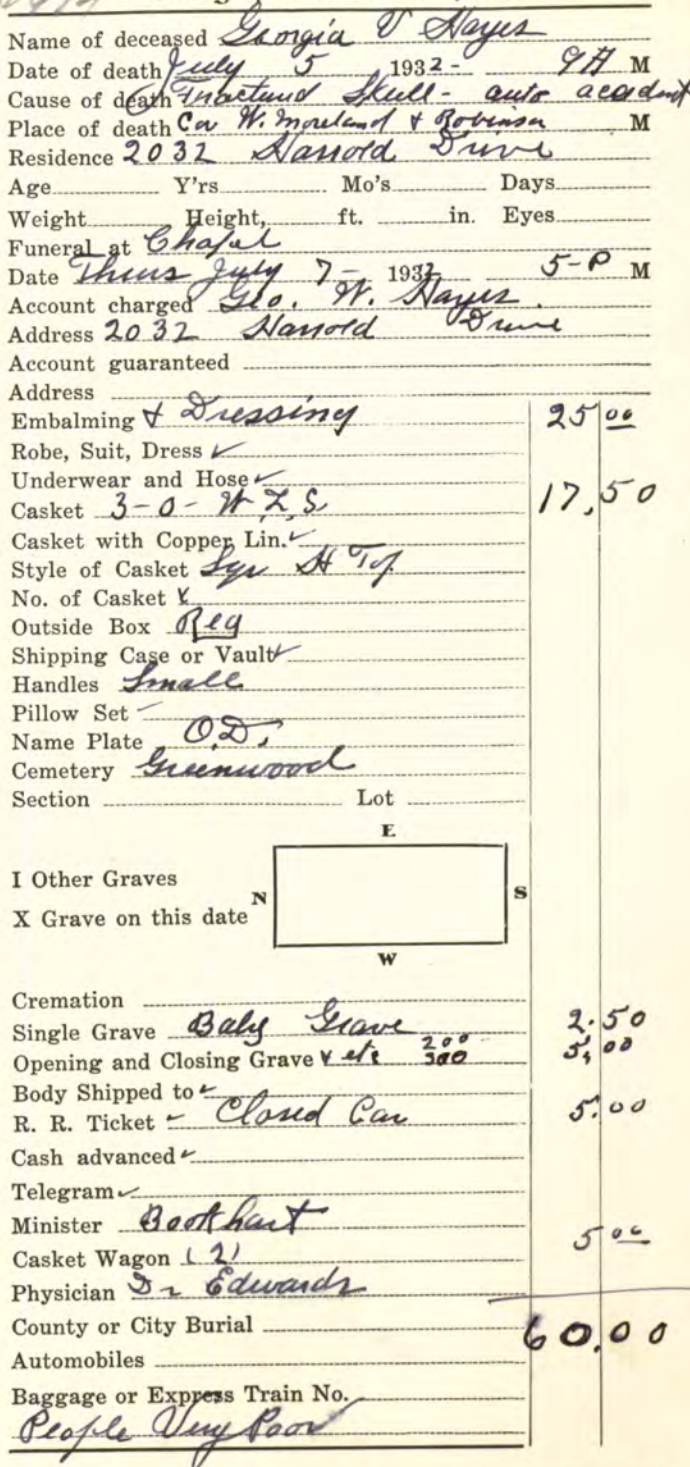 Name of deceased Georgia V Hayes
Date of death July 5 1932- 9 A M
Cause of death Fractured Skull - auto accident
Place of death Cor W. Moreland & Robinson M
Residence 2032 Harrold Drive
Age Y'rs Mo's Days
Weight Height, ft. in. Eyes
Funeral at Chapel
Date Thurs July 7- 1932 5-P M
Account charged Geo. W. Hayes.
Address 2032 Harrold Drive
Account guaranteed
Address
Embalming & Dressing 25 00
Robe, Suit, Dress ✓
Underwear and Hose ✓
Casket 3-0- W.L.S. 17,50
Casket with Copper Lin. ✓
Style of Casket Sqr H Top
No. of Casket ✓
Outside Box Reg
Shipping Case or Vault ✓
Handles Small
Pillow Set -
Name Plate O.D.
Cemetery Greenwood
Section Lot
E
I Other Graves
N S
X Grave on this date
W
Cremation
Single Grave Baby Grave 2.50
200
Opening and Closing Grave ✓ etc 300 5,00
Body Shipped to ✓
R. R. Ticket - Closed Car 5.00
Cash advanced ✓
Telegram ✓
Minister Bookhart
Casket Wagon (2) 5 00
Physician Dr Edwards
County or City Burial 60.00
Automobiles
Baggage or Express Train No.
People Very Poor